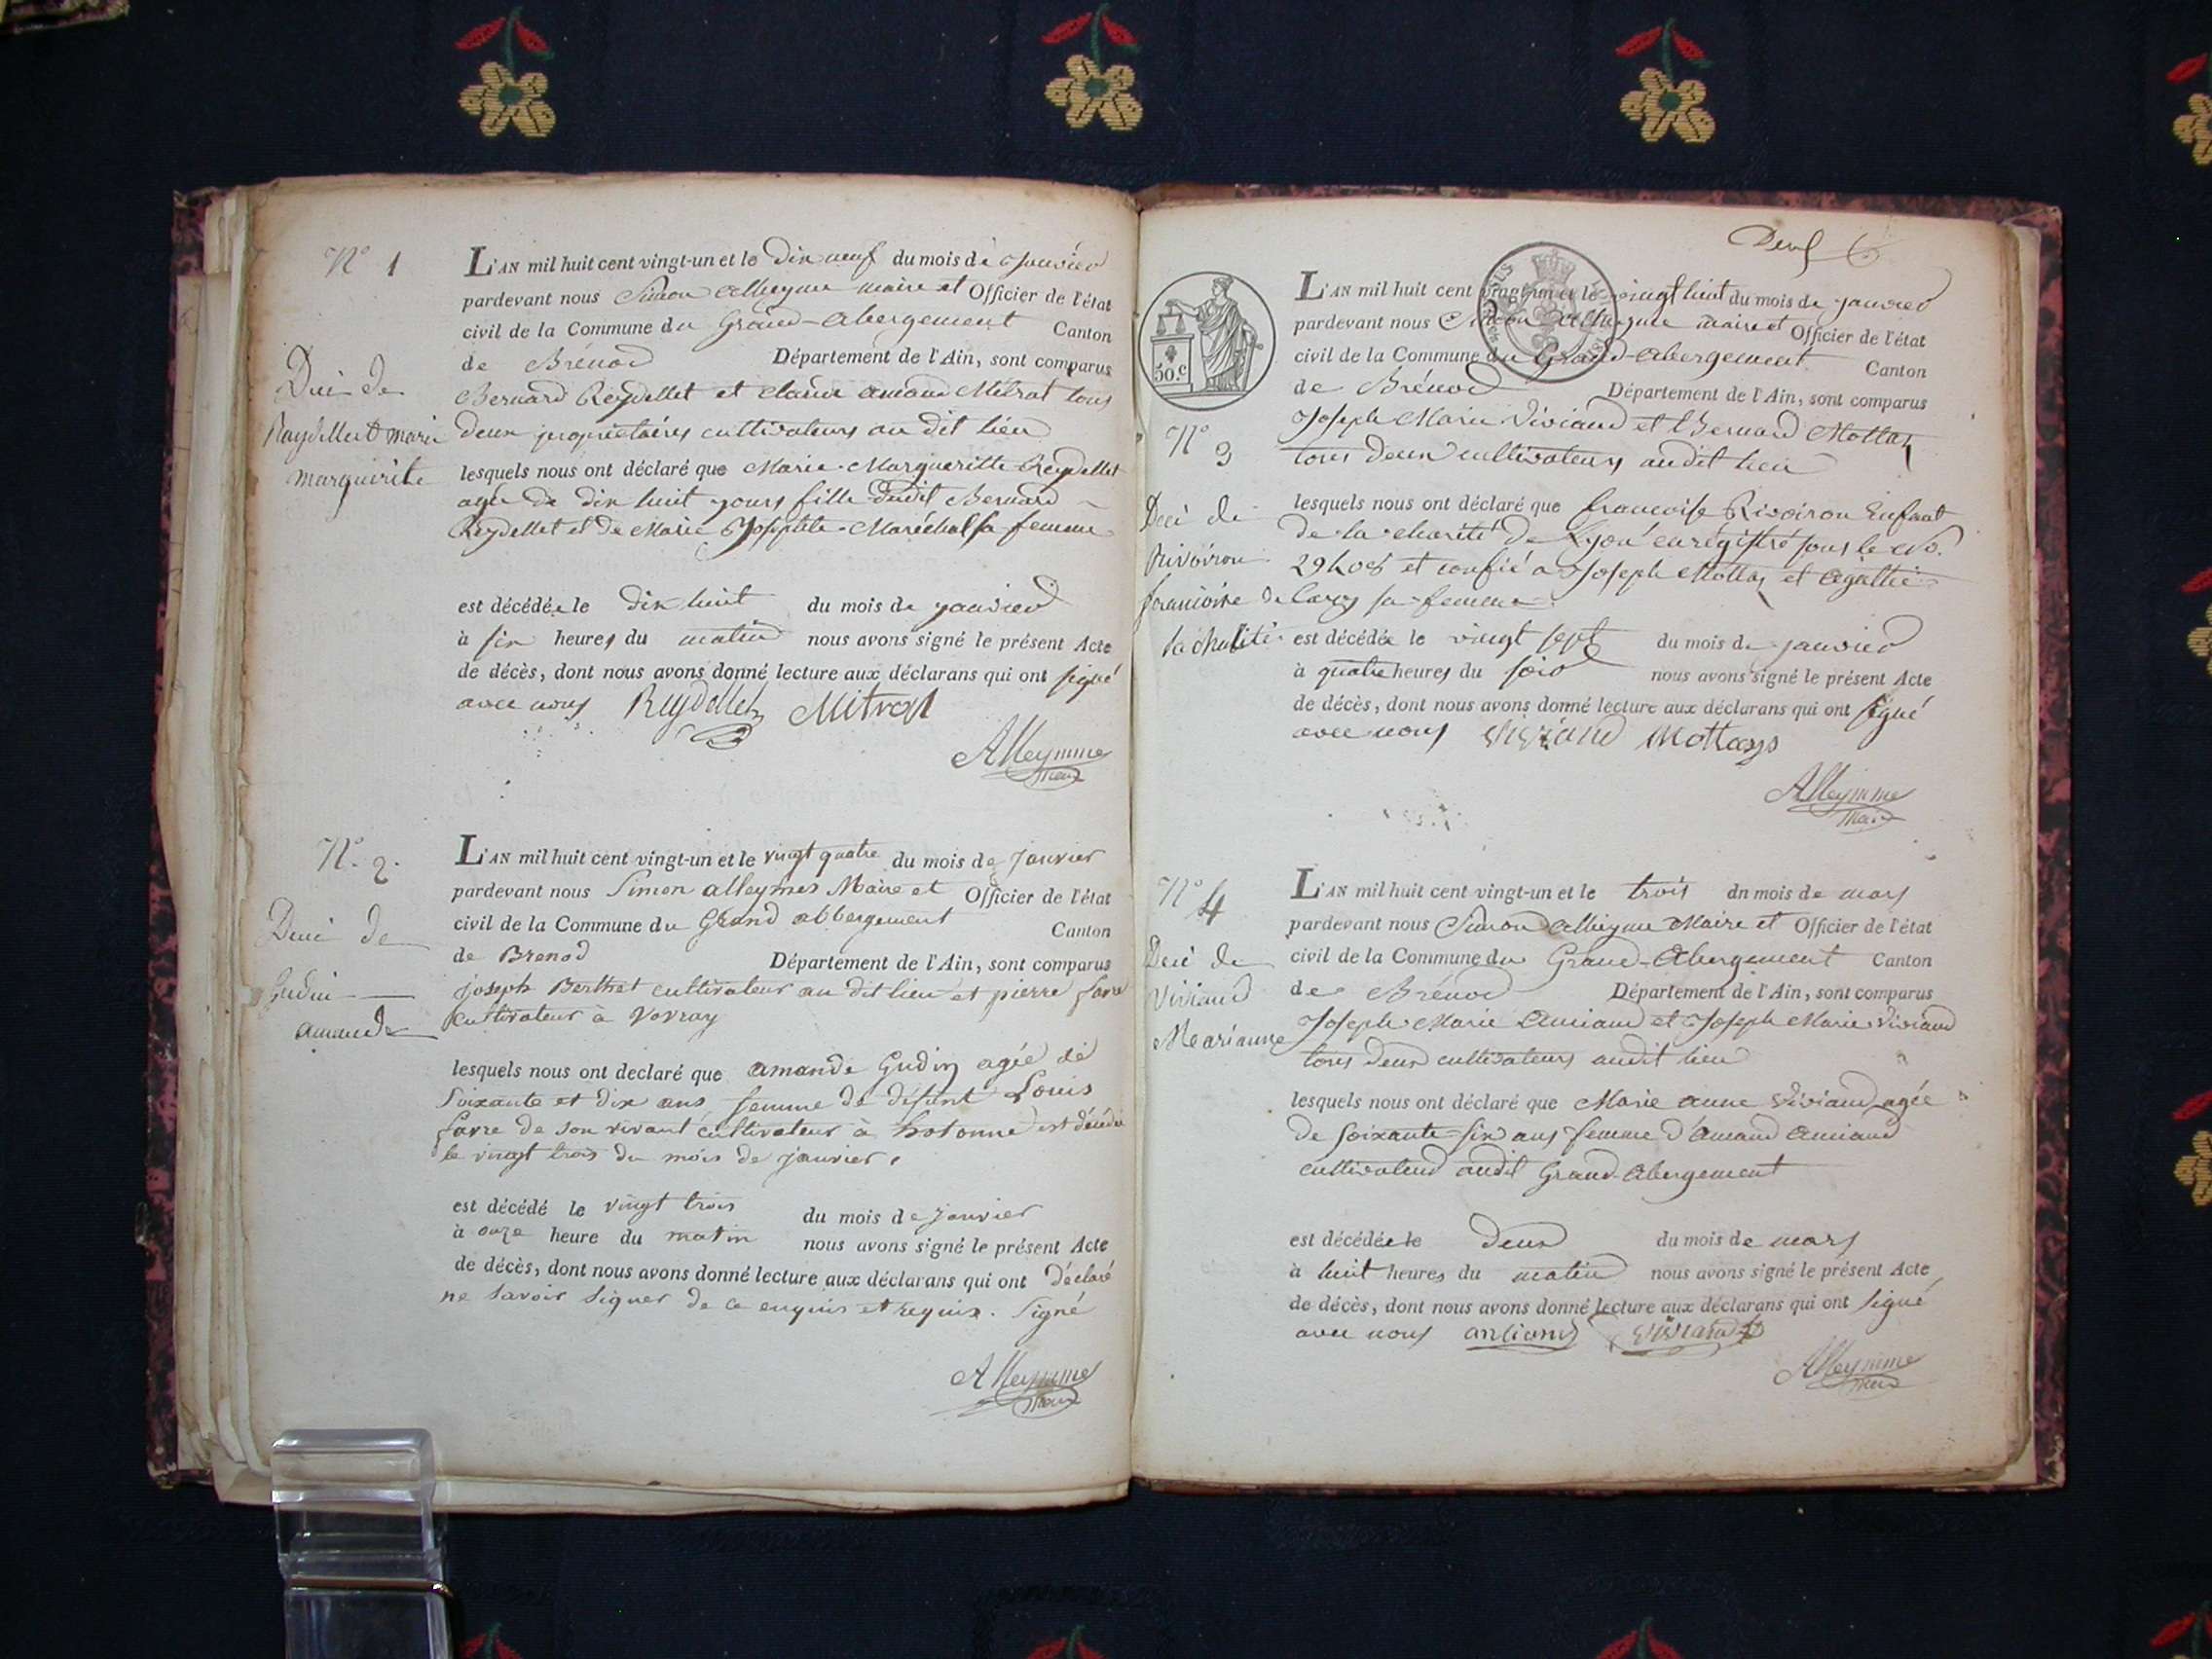 N° 1
L'AN mil huit cent vingt-un et le dix neuf du mois de Janvier
pardevant nous Simon alleyme maire et Officier de l'état
civil de la Commune du Grand-abergement Canton
de Brénod Département de l'Ain, sont comparus
Bernard Reydellet et Claude amand Mitrat tous
deux propriétaires cultivateurs au dit lieu
Deci de
Raydellet marie
marguirite
lesquels nous ont déclaré que Marie-Margueritte Reydellet
agée de dix huit jours fille dudit Bernard
Reydellet et de Marie Josephte Maréchal sa femme
est décédée le dix huit du mois de janvier
à six heures du matin nous avons signé le présent Acte
de décès, dont nous avons donné lecture aux déclarans qui ont signé
avec nous Reydellet Mitrat
Alleymme
maire
N° 2.
L'AN mil huit cent vingt-un et le vingt quatre du mois de janvier
pardevant nous Simon alleymes Maire et Officier de l'état
civil de la Commune du Grand abbergement Canton
de Brenod Département de l'Ain, sont comparus
Deci de
Gudin
amande
joseph Berthet cultivateur au dit lieu et pierre favre
cultivateur à Vovray
lesquels nous ont declaré que amande Gudin agée de
Soixante et dix ans femme de défunt Louis
favre de son vivant cultivateur à hotonne est décédée
le vingt trois du mois de janvier.
est décédé le vingt trois du mois de janvier
à onze heure du matin nous avons signé le présent Acte
de décès, dont nous avons donné lecture aux déclarans qui ont déclaré
ne savoir signer de ce enquis et requis. Signé
Alleymme
maire
50.c
L'AN mil huit cent vingt-un et le vingt huit du mois de janvier
pardevant nous Simon alleyme maire et Officier de l'état
civil de la Commune du Grand-abergement Canton
de Brénod Département de l'Ain, sont comparus
Joseph Marie Viviand et Bernard Mottaz
tous deux cultivateurs audit lieu
N° 3
Deci de
Rivoiron
francoise de
la charité
lesquels nous ont déclaré que francoise Rivoiron Enfant
de la charité de Lyon enrégistré sous le No.
et confié a Joseph Mottaz et Agathe
Carry sa femme
est décédée le vingt sept du mois de janvier
à quatre heures du soir nous avons signé le présent Acte
de décès, dont nous avons donné lecture aux déclarans qui ont signé
avec nous Viviand Mottaz
Alleymme
Maire
N° 4
L'AN mil huit cent vingt-un et le trois du mois de mars
pardevant nous Simon alleyme Maire et Officier de l'état
civil de la Commune du Grand-Abergement Canton
de Brénod Département de l'Ain, sont comparus
Deci de
Viviand
Marianne
Joseph Marie Anciand et Joseph Marie Viviand
tous deux cultivateurs audit lieu
lesquels nous ont déclaré que Marie anne Viviand agée
de soixante-six ans femme d'amand Anciand
cultivateur audit Grand-Abergement
est décédée le deux du mois de mars
à huit heures du matin nous avons signé le présent Acte
de décès, dont nous avons donné lecture aux déclarans qui ont signé
avec nous anciand Viviand
Alleymme
maire